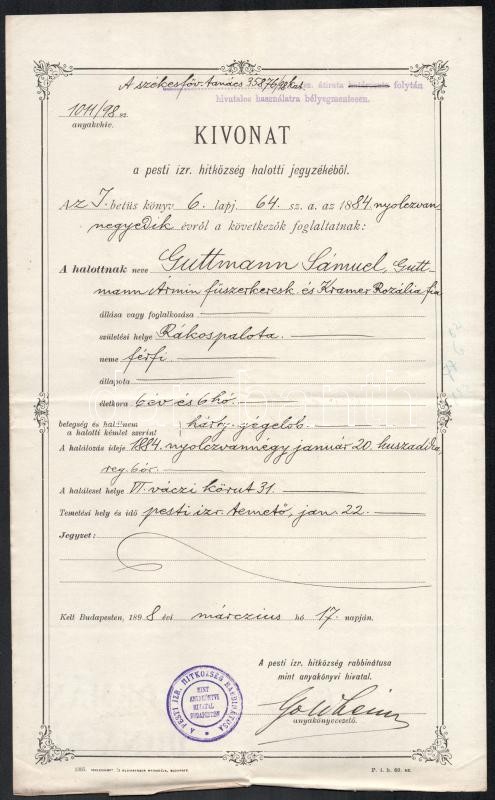 A székesföv. tanács 35876/98 sz. átirata folytán
hivatalos használatra bélyegmentesen.
1011/98 sz.
anyakchiv.
KIVONAT
a pesti izr. hitközség halotti jegyzékéből.
Az I. betüs könyv 6. lapj. 64. sz. a. az 1884. nyolczvan
negyedik évről a következők foglaltatnak:
A halottnak neve Guttmann Sámuel, Gutt-
mann Ármin füszerkeresk. és Kramer Rozália fia
állása vagy foglalkozása
születési helye Rákospalota.
neme férfi
állapota
életkora 6 év és 6 hó.
betegség és halnem
a halotti kémlet szerint hárty. gégelob.
A halálozás ideje 1884. nyolczvannégy január 20. huszadika
reg. 6 ór.
A haláleset helye VI. váczi körut 31.
Temetési hely és idő pesti izr. temető, jan. 22.
Jegyzet:
Kelt Budapesten, 1898 évi márczius hó 17. napján.
A pesti izr. hitközség rabbinátusa
mint anyakönyvi hivatal.
A PESTI IZR. HITKÖZSÉG RABBINÁTUSA
MINT
ANYAKÖNYVI
HIVATAL
BUDAPESTEN
anyakönyvvezető.
P. i. h. 60. sz.